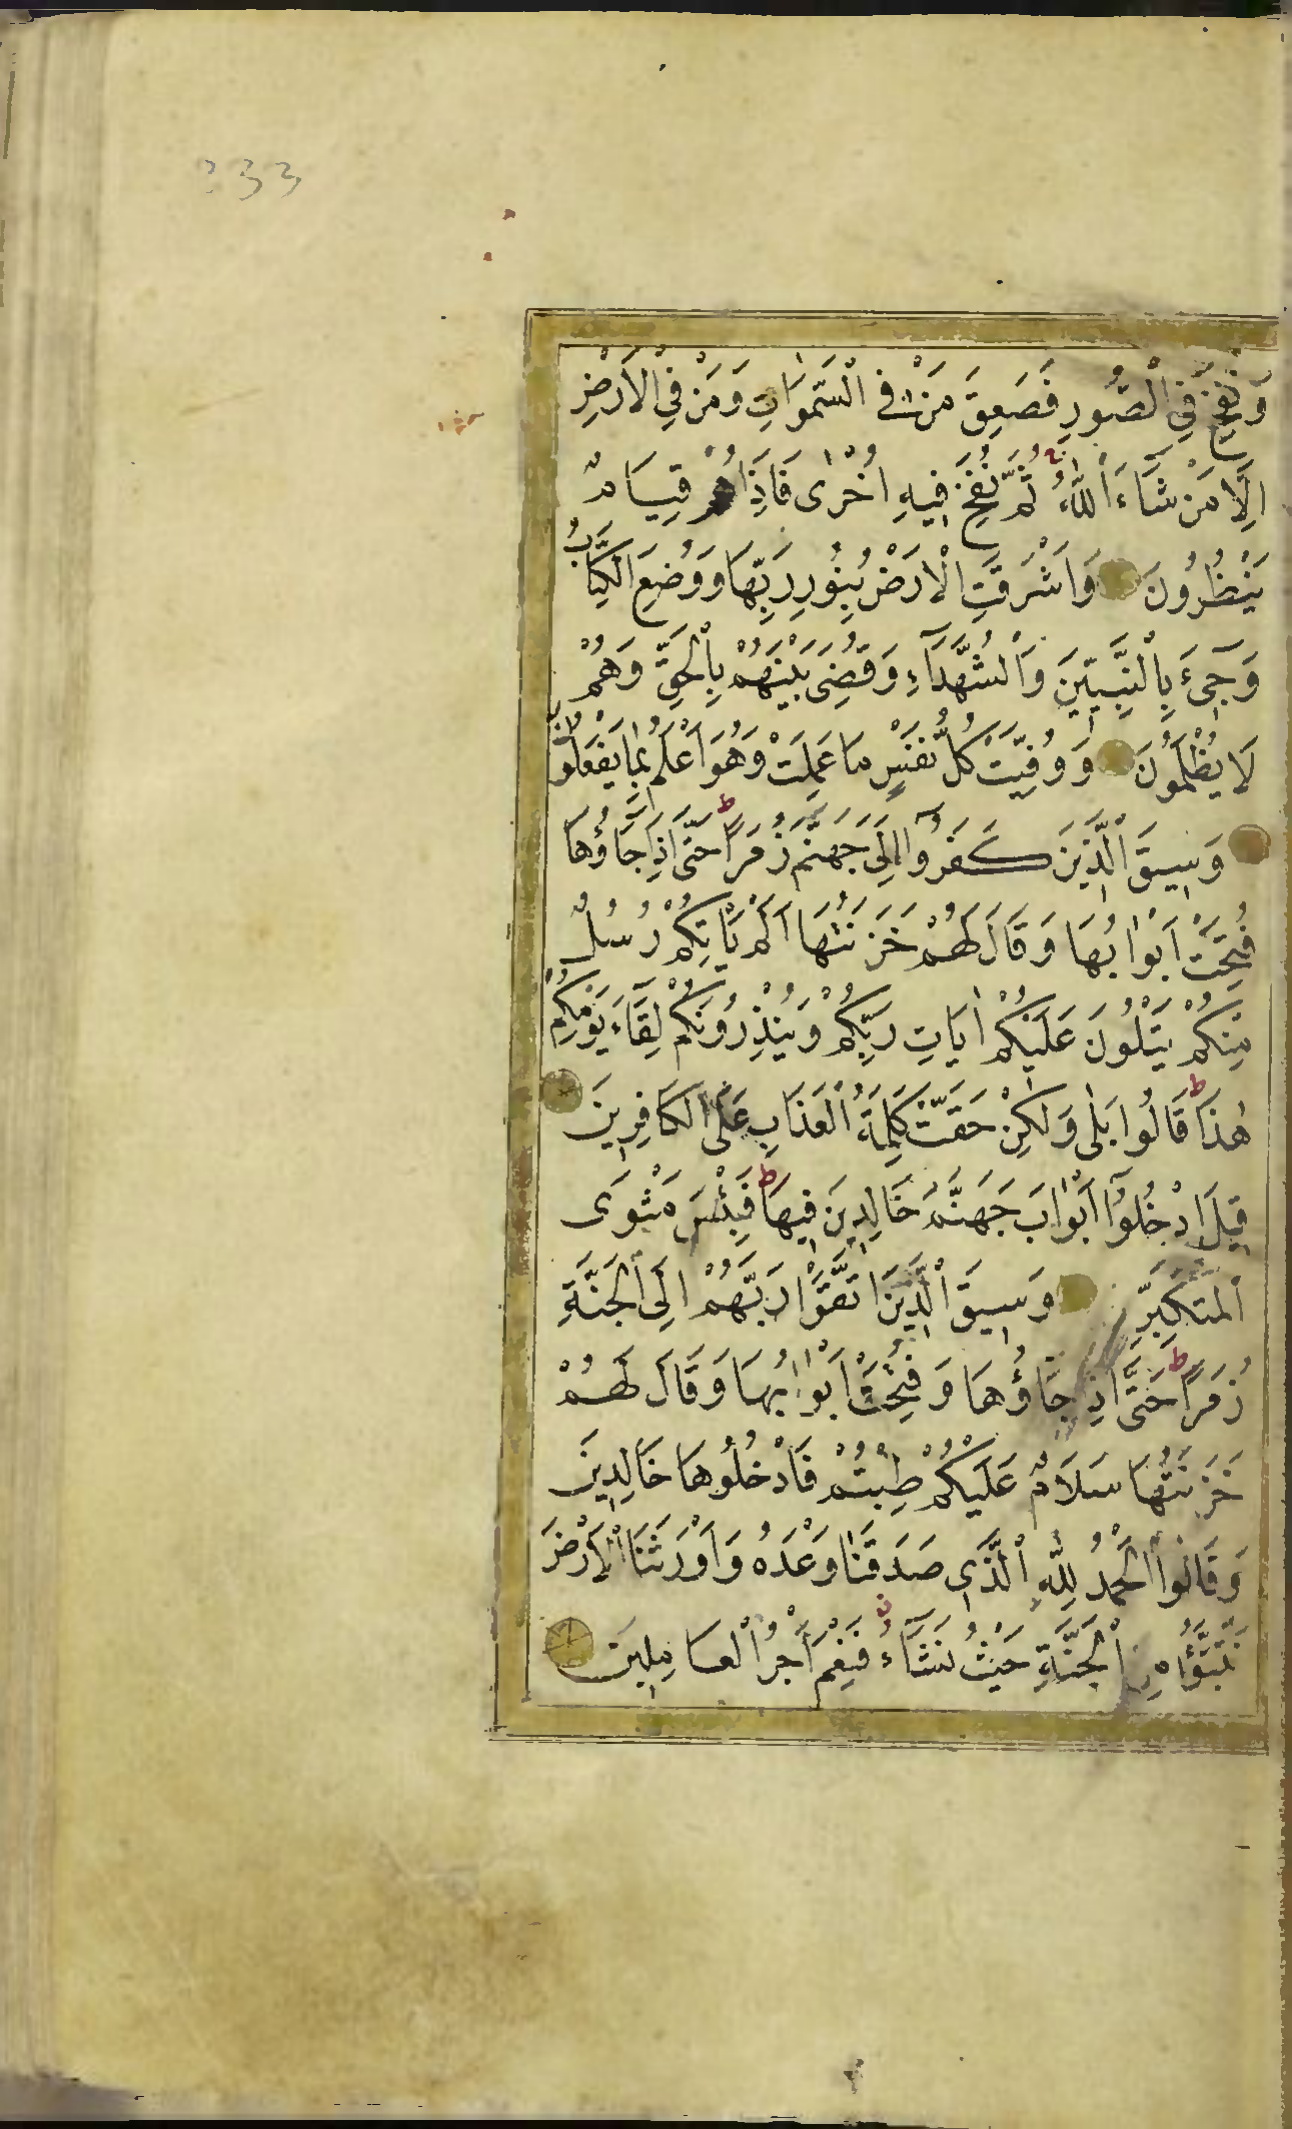 333
وَنُفِخَ فِي الْصُّورِ فَصَعِقَ مَنْ فِي الْسَّمٰوَاتِ وَمَنْ فِي الْاَرْضِ
اِلَّا مَنْ شَآءَ اللّٰهُ ثُمَّ نُفِخَ فِيهِ اُخْرٰى فَاِذَا هُمْ قِيَامٌ
يَنْظُرُونَ وَاَشْرَقَتِ الْاَرْضُ بِنُورِ رَبِّهَا وَوُضِعَ الْكِتَابُ
وَجِىءَ بِالْنَّبِيّٖنَ وَالْشُّهَدَآءِ وَقُضِىَ بَيْنَهُمْ بِالْحَقِّ وَهُمْ
لَا يُظْلَمُونَ وَوُفِّيَتْ كُلُّ نَفْسٍ مَا عَمِلَتْ وَهُوَ اَعْلَمُ بِمَا يَفْعَلُونَ
وَسِيقَ الَّذِينَ كَفَرُوٓا اِلٰى جَهَنَّمَ زُمَرًا ط حَتَّى اِذَا جَآؤُهَا
فُتِحَتْ اَبْوَابُهَا وَقَالَ لَهُمْ خَزَنَتُهَا اَلَمْ يَاْتِكُمْ رُسُلٌ
مِنْكُمْ يَتْلُونَ عَلَيْكُمْ اٰيَاتِ رَبِّكُمْ وَيُنْذِرُونَكُمْ لِقَآءَ يَوْمِكُمْ
هٰذَا ط قَالُوا بَلٰى وَلٰكِنْ حَقَّتْ كَلِمَةُ الْعَذَابِ عَلَى الْكَافِرِينَ
قِيلَ ادْخُلُوٓا اَبْوَابَ جَهَنَّمَ خَالِدِينَ فِيهَا ط فَبِئْسَ مَثْوَى
الْمُتَكَبِّرِ وَسِيقَ الَّذِينَ اتَّقَوْا رَبَّهُمْ اِلَى الْجَنَّةِ
زُمَرًا ط حَتَّى اِذَا جَآؤُهَا وَفُتِحَتْ اَبْوَابُهَا وَقَالَ لَهُمْ
خَزَنَتُهَا سَلَامٌ عَلَيْكُمْ طِبْتُمْ فَادْخُلُوهَا خَالِدِينَ
وَقَالُوا الْحَمْدُ لِلّٰهِ الَّذِى صَدَقَنَا وَعْدَهُ وَاَوْرَثَنَا الْاَرْضَ
نَتَبَوَّؤُا مِنَ الْجَنَّةِ حَيْثُ نَشَآءُ فَنِعْمَ اَجْرُ الْعَامِلِينَ